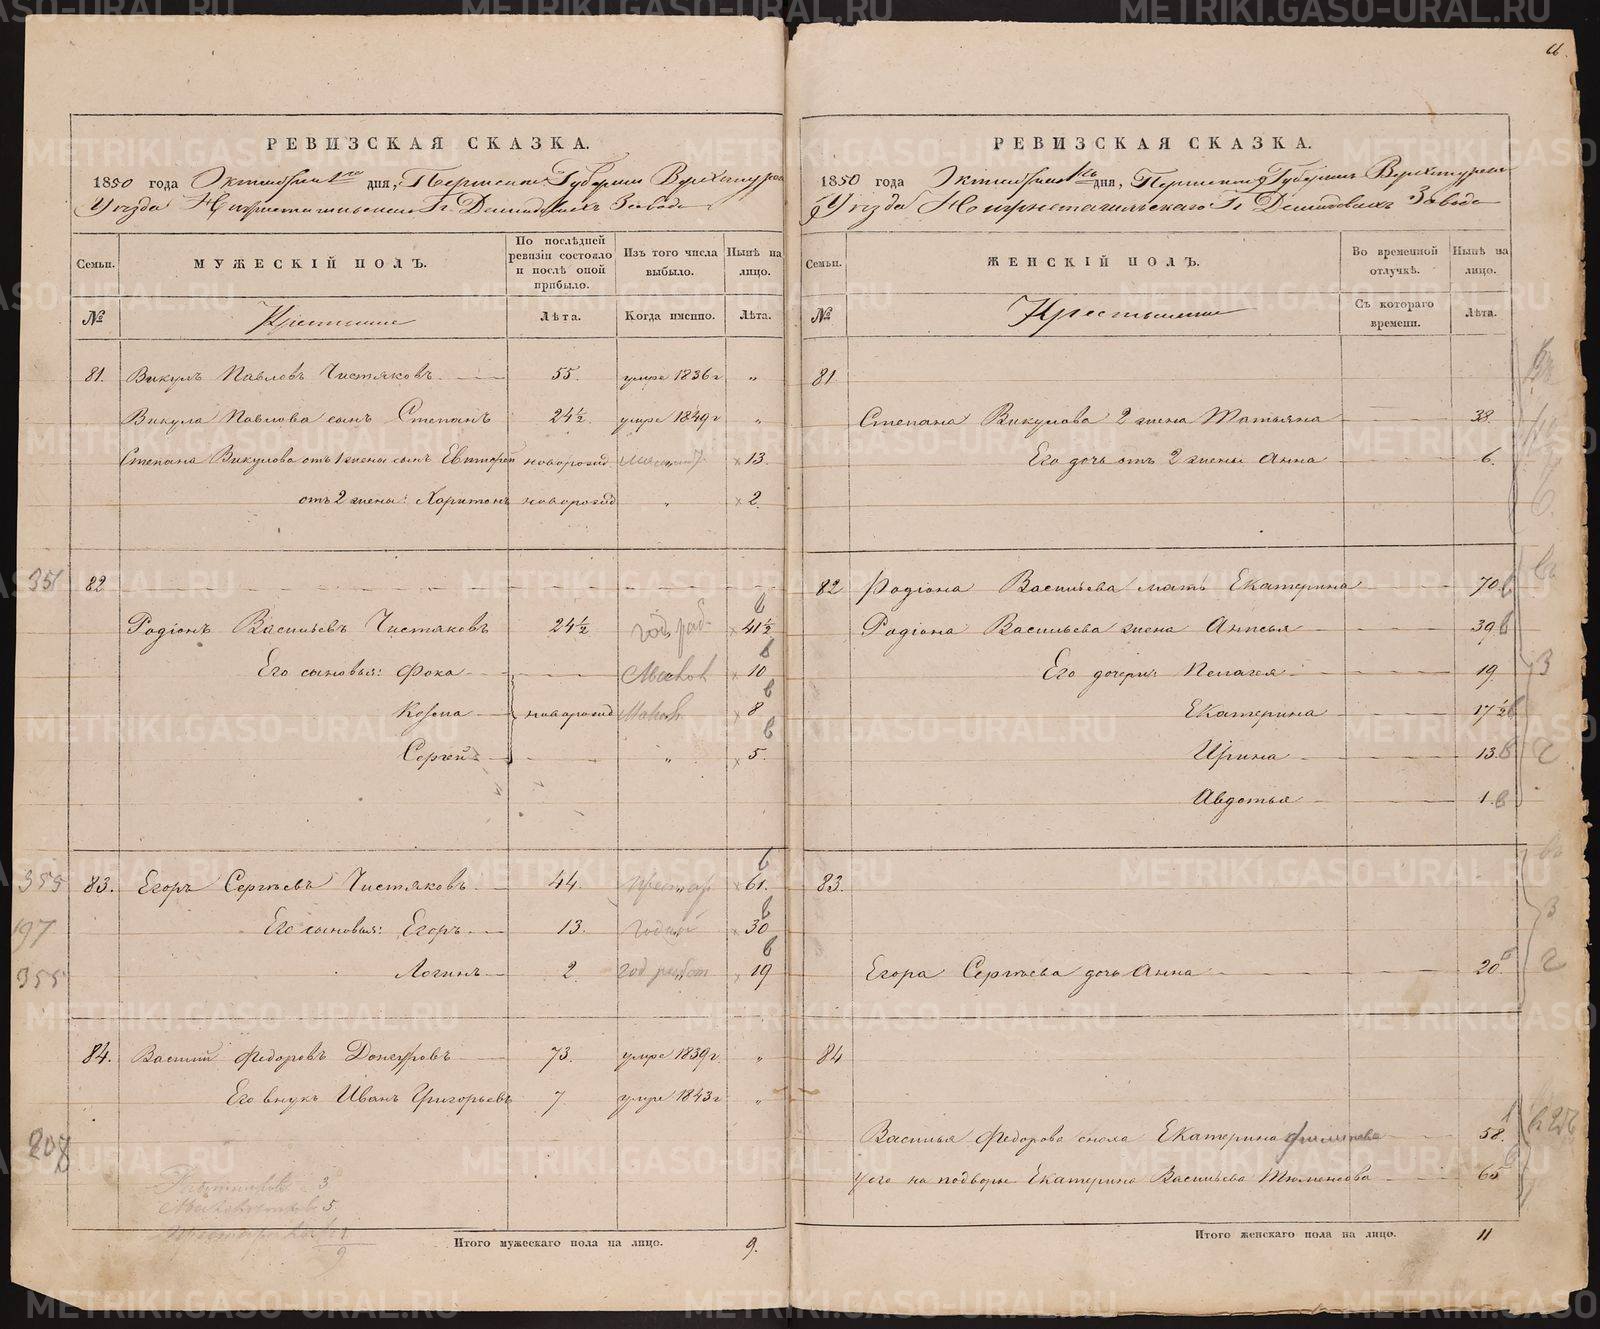 РЕВИЗСКАЯ СКАЗКА.
1850 года Октября 1го дня, Пермской Губернии Верхотурскаго
Уѣзда Нижнетагильскаго Гг. Демидовыхъ Завода
Семьи.
МУЖЕСКІЙ ПОЛЪ.
По послѣдней ревизіи состояло и послѣ оной прибыло.
Изъ того числа выбыло.
Нынѣ на лицо.
№
Крестьяне
Лѣта.
Когда именно.
Лѣта.
81. Викулъ Павловъ Чистяковъ 55. умре 1836 г "
Викула Павлова сынъ Степанъ 24½ умре 1849 г "
Степана Викулова отъ 1 жены сынъ новорожд 13.
отъ 2 жены: Харитонъ новорожд " 2.
351
82
Родіонъ Васильевъ Чистяковъ 24½ год раб. 41½
Его сыновья: Фока 10
Козма новорожд 8
Сергей " 5.
355 83. Егоръ Сергѣевъ Чистяковъ 44. престар 61.
197 Его сыновья: Егоръ 13. годный 30
355 Логинъ 2. год работ 19
84. Василий Федоровъ 73. умре 1839 г. "
Его внукъ Иванъ Григорьевъ 7 умре 1843 г "
207
3
5
1
9
Итого мужескаго пола на лицо. 9.
РЕВИЗСКАЯ СКАЗКА.
1850 года Октября 1го дня, Пермской Губерніи Верхотурскаго
Уѣзда Нижнетагильскаго Гг. Демидовыхъ Завода
Семьи.
ЖЕНСКІЙ ПОЛЪ.
Во временной отлучкѣ.
Нынѣ на лицо.
№
Крестьяне
Съ котораго времени.
Лѣта.
81
Степана Викулова 2 жена Татьяна 38.
Его дочь отъ 2 жены Анна 6.
82 Родіона Васильева мать Екатерина 70
Родіона Васильева жена Анисья 39
Его дочери: Пелагея 19
Екатерина 17½
Ирина 13.
Авдотья 1.
83.
Егора Сергѣева дочь Анна 20
84
Василья Федорова сноха Екатерина 58.
У его на подворьи Екатерина Васильева 65
Итого женскаго пола на лицо. 11
METRIKI.GASO-URAL.RU